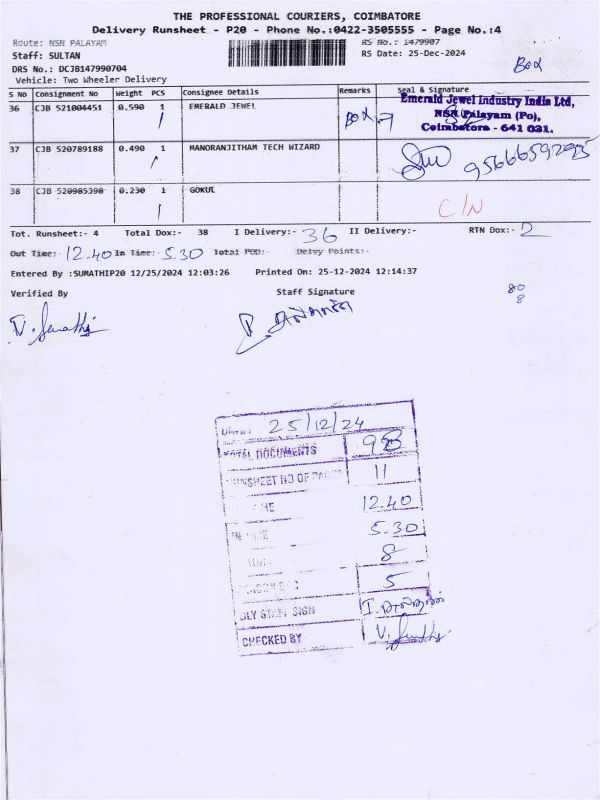 THE PROFESSIONAL COURIERS, COIMBATORE
Delivery Runsheet - P20 - Phone No.:0422-3505555 - Page No.:4
Route: NSN PALAYAM
RS No.: 1479907
Staff: SULTAN
RS Date: 25-Dec-2024
Box
DRS No.: DCJB147990704
Vehicle: Two Wheeler Delivery
S No Consignment No Weight PCS Consignee Details Remarks Seal & Signature
36 CJB 521004451 0.590 1 EMERALD JEWEL Box
Emerald Jewel Industry India Ltd,
NSN Palayam (Po),
Coimbatore - 641 031.
37 CJB 520789188 0.490 1 MANORANJITHAM TECH WIZARD
38 CJB 520985390 0.230 1 GOKUL C/N
Tot. Runsheet:- 4 Total Dox:- 38 I Delivery:- 36 II Delivery:- RTN Dox:- 2
Out Time:- 12.40 In Time:- 5.30 Total POD:- Delvy Points:-
Entered By :SUMATHIP20 12/25/2024 12:03:26 Printed On: 25-12-2024 12:14:37
Verified By Staff Signature
80
8
25/12/24
TOTAL DOCUMENTS 98
11
12.40
5.30
8
5
DLY STAFF SIGN
CHECKED BY